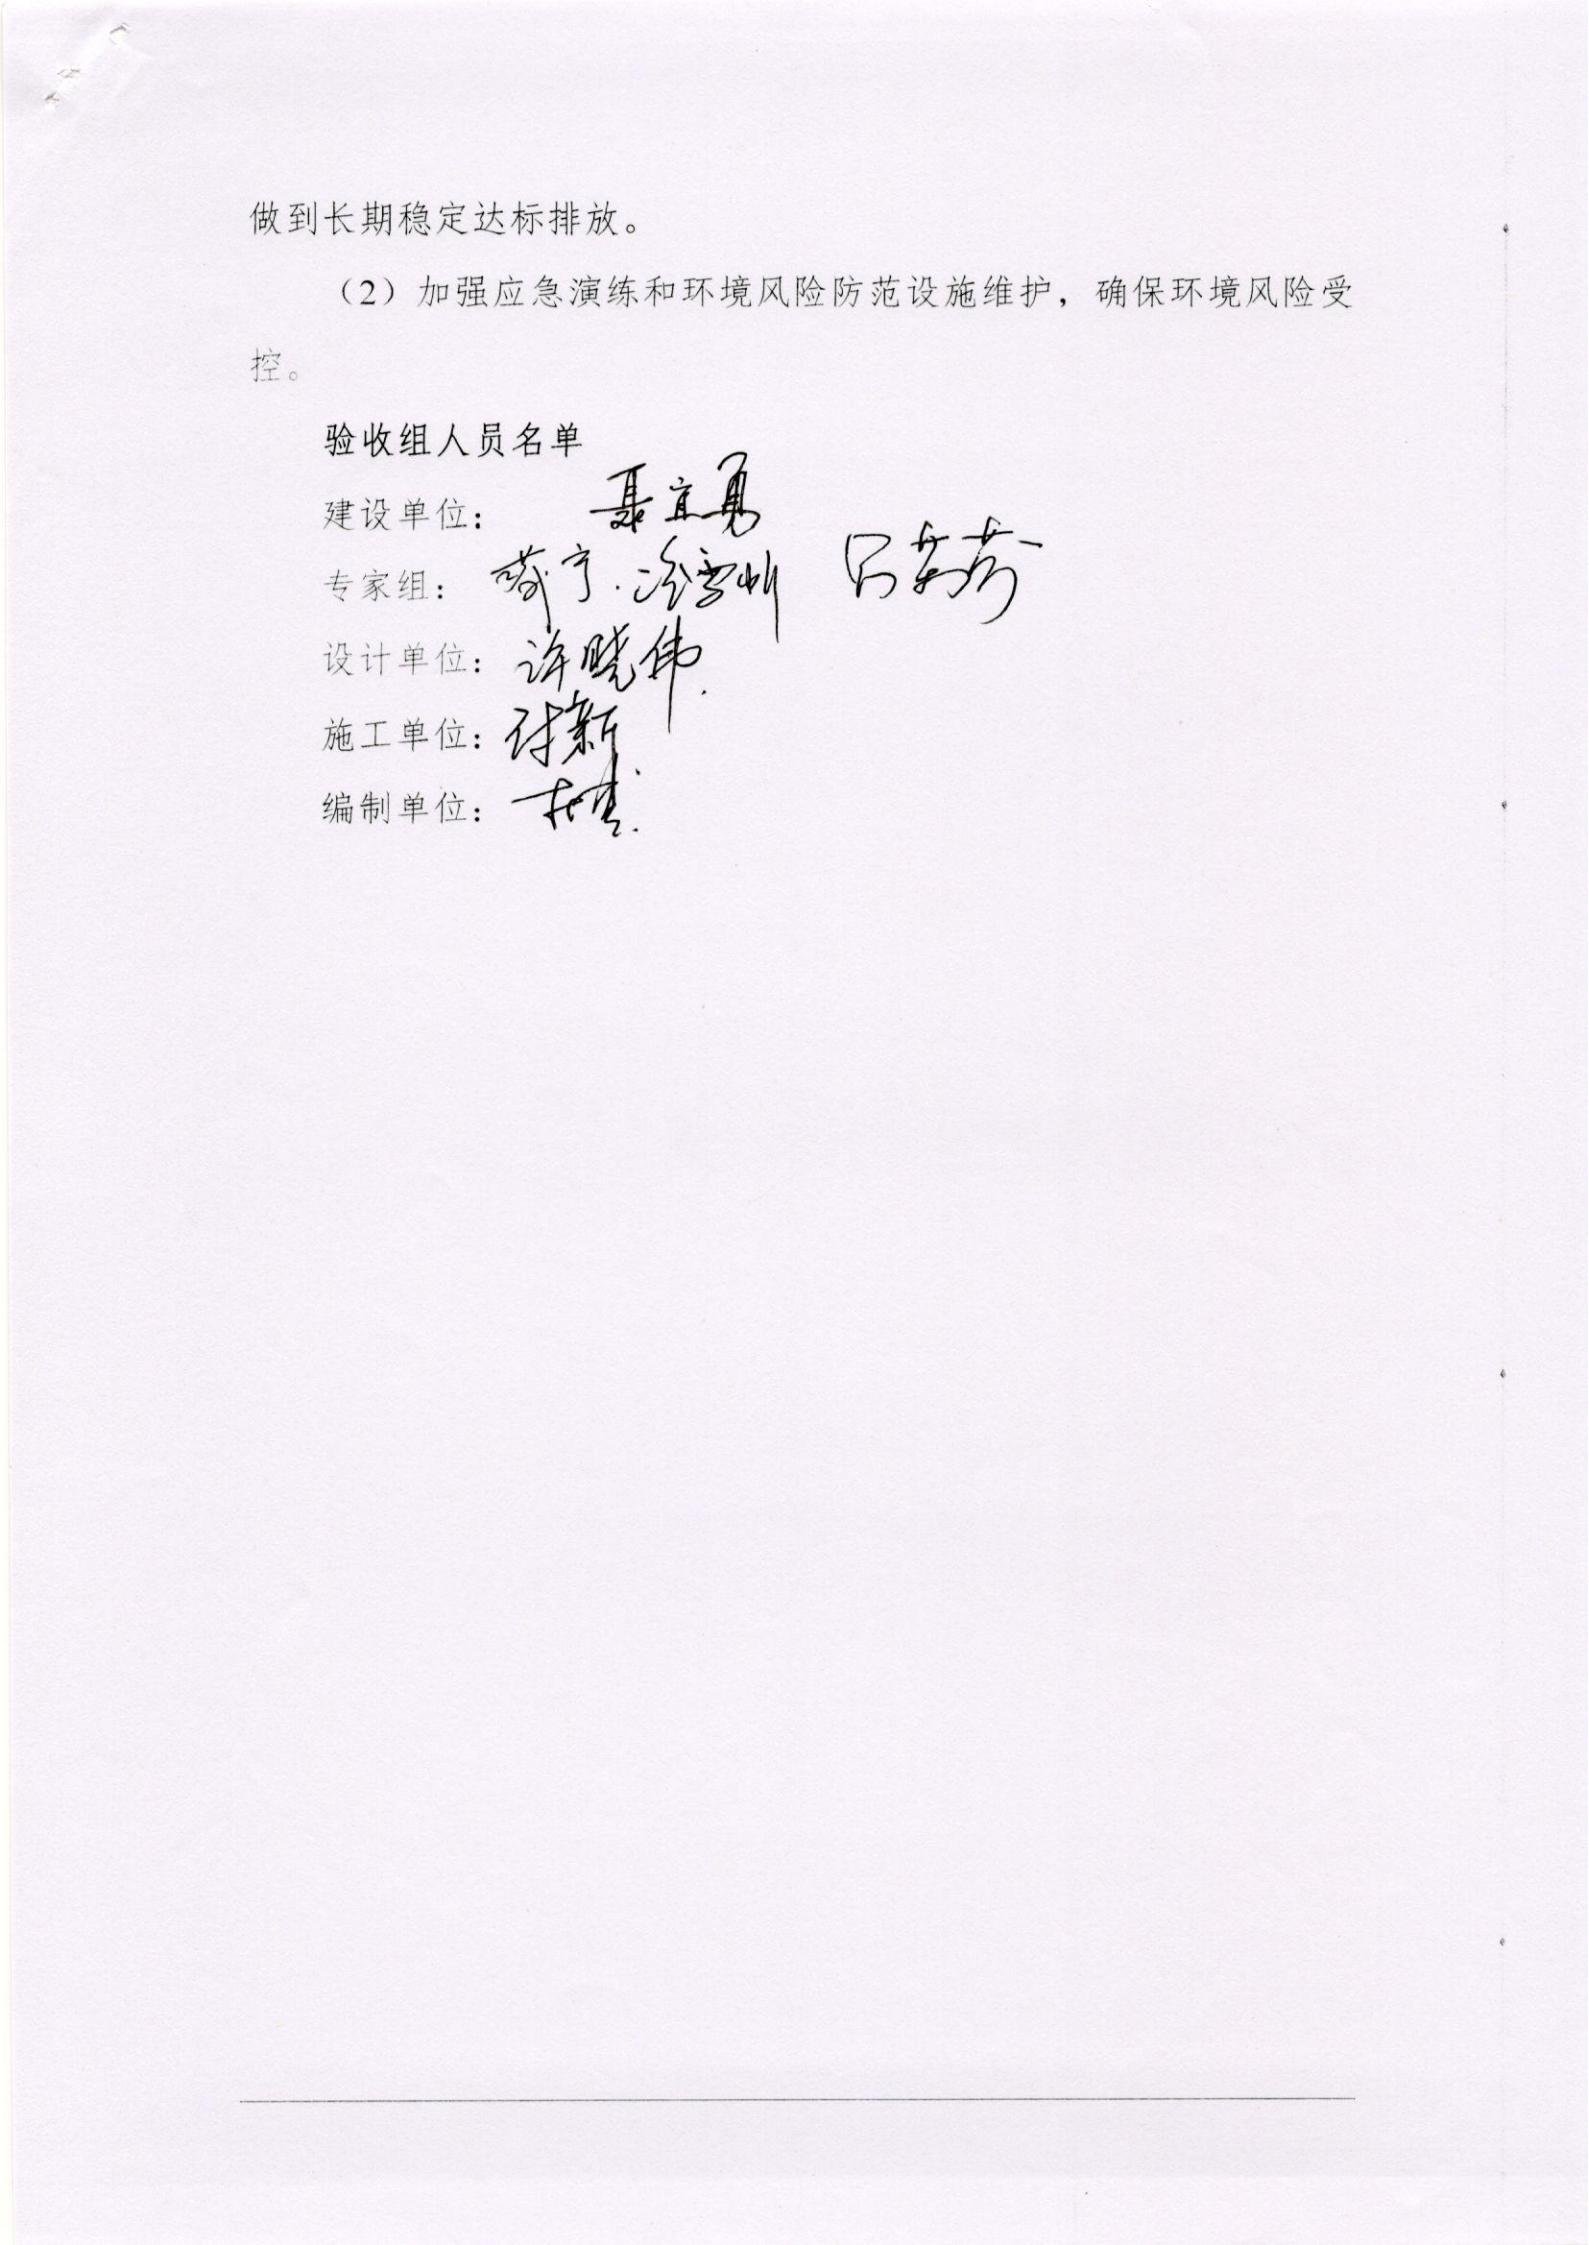 做到长期稳定达标排放。
（2）加强应急演练和环境风险防范设施维护，确保环境风险受
控。
验收组人员名单
建设单位： 聂宜勇
专家组：
设计单位：许晓伟
施工单位：付新
编制单位：